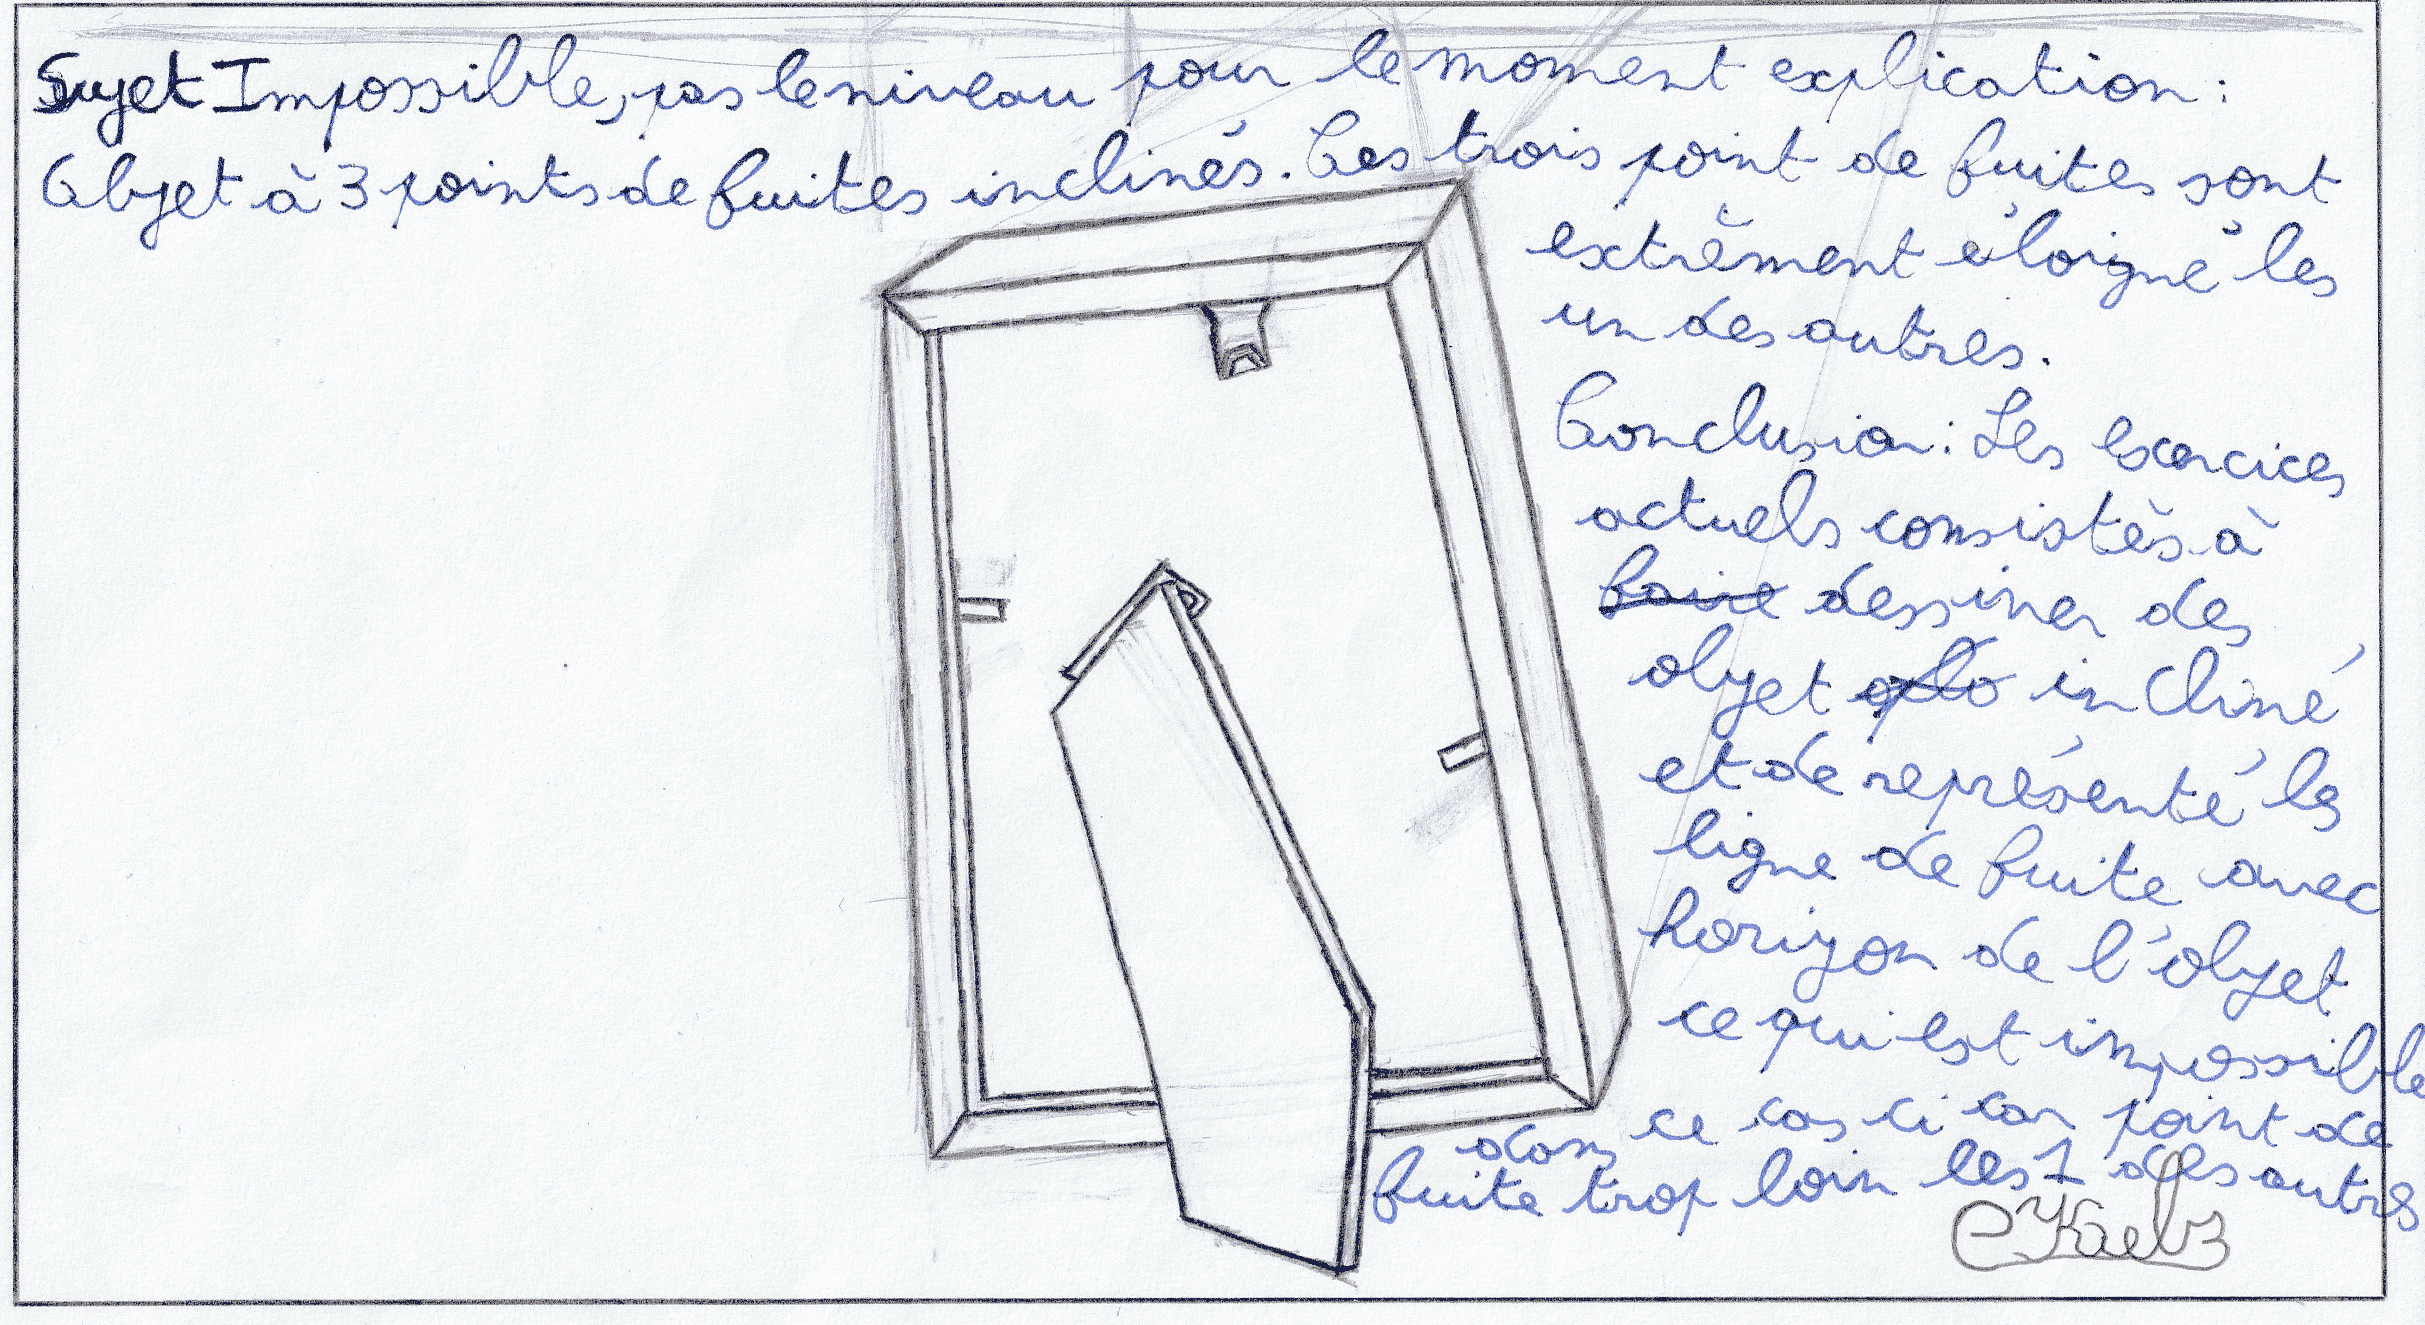 Sujet Impossible, pas le niveau pour le moment explication :
Objet à 3 points de fuites inclinés. Les trois point de fuites sont
extrêment éloigné les
un des autres.
Conclusion : Les exercices
actuels consistès à
faire dessiner des
objet incliné
et de représenté les
ligne de fuite avec
horizon de l'objet
ce qui est impossible
dans ce cas ci car point de
fuite trop loin les 1 des autres